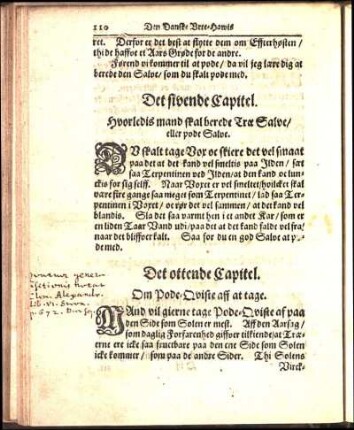 110 Den Danske Vrte-Hawis
ret. Derfor er det best at flytte dem om Effterhøsten/
thi de haffve et Aars Grøde for de andre.
Førend vi kommer til at pode/ da vil jeg lære dig at
berede den Salve/ som du skalt pode med.
Det sivende Capitel.
Hvorledis mand skal berede Træ Salve/
eller pode Salve.
DV skalt tage Vox oc skiere det vel smaat
paa det at det kand vel smeltis paa Ilden/ sæt
saa Terpentinen ved Ilden/ at den kand oc
smeltis for sig selff. Naar Voxet er vel smeltet/ hvilcket skal
være fire gange saa meget som Terpentinet/ lad saa Ter-
pentinen i Voxet/ oc rør det vel sammen/ at det kand vel
blandis. Sla det saa varmt hen i et andet Kar/ som er
en liden Taar Vand udi/ paa det at det kand falde vel fra/
naar det bliffver kalt. Saa før du en god Salve at po-
de med.
Det ottende Capitel.
Om Pode-Qviste aff at tage.
MAnd vil gierne tage Pode-Qviste af paa
den Side som Solen er mest. Aff den Aarsag/
som daglig Forfarenhed giffver tilkiende/ at Træ-
erne ere icke saa fructbare paa den ene Side som Solen
icke kommer/ som paa de andre Sider. Thi Solens
Virck-